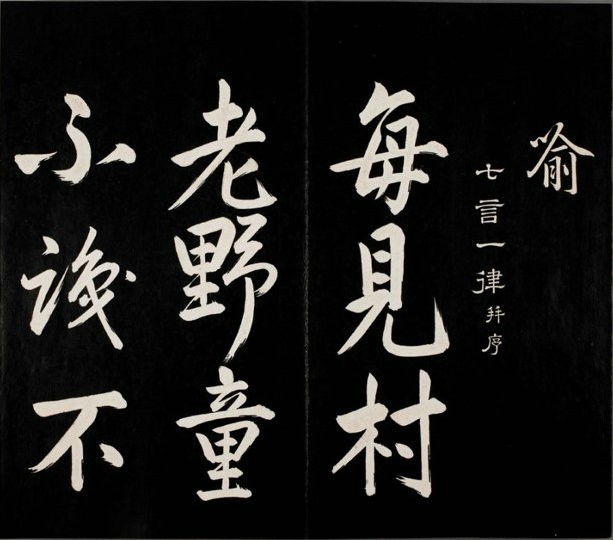 喻
七言一律幷序
每見村
老野童
不識不